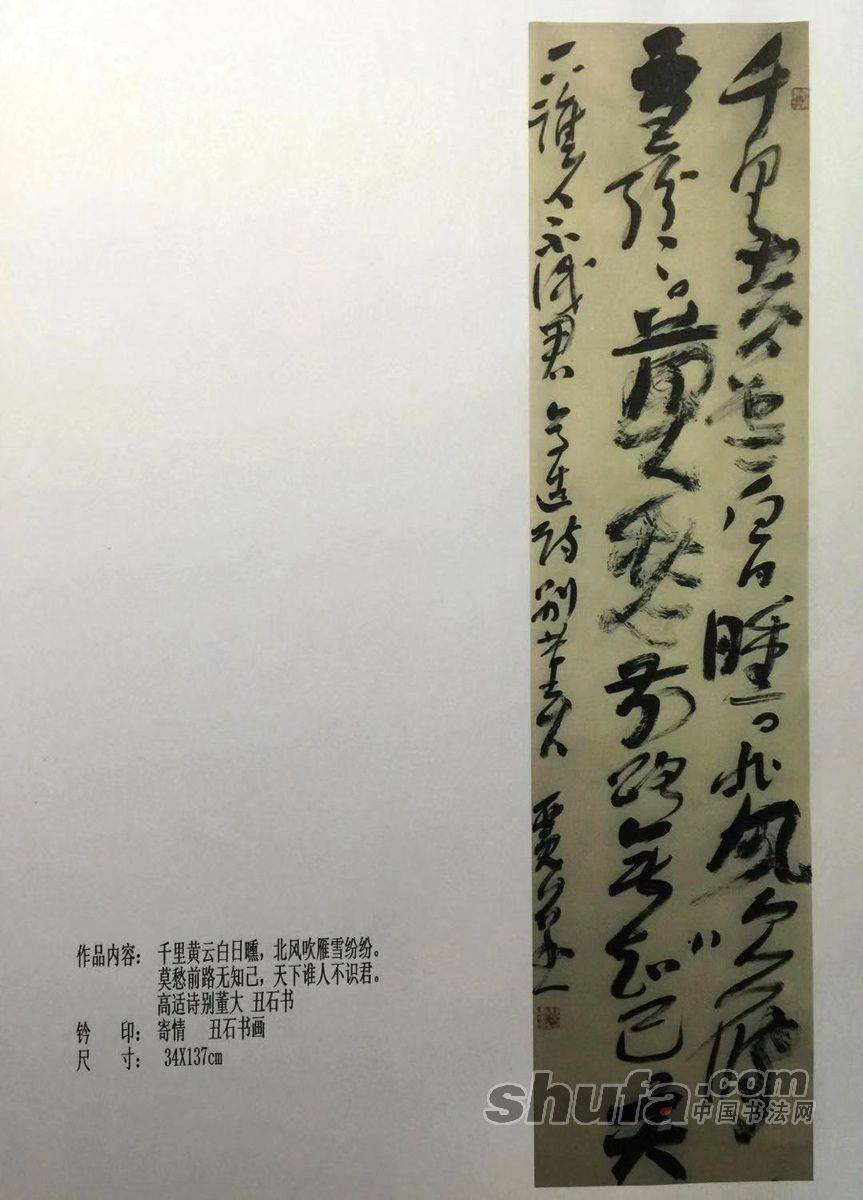 千里黄云白日曛北風吹雁
雪紛紛莫愁前路無知己天
下誰人不識君 高適詩別董大
作品内容： 千里黄云白日曛，北风吹雁雪纷纷。
莫愁前路无知己，天下谁人不识君。
高适诗别董大 丑石书
钤 印： 寄情 丑石书画
尺 寸： 34X137cm
shufa.com
中国书法网